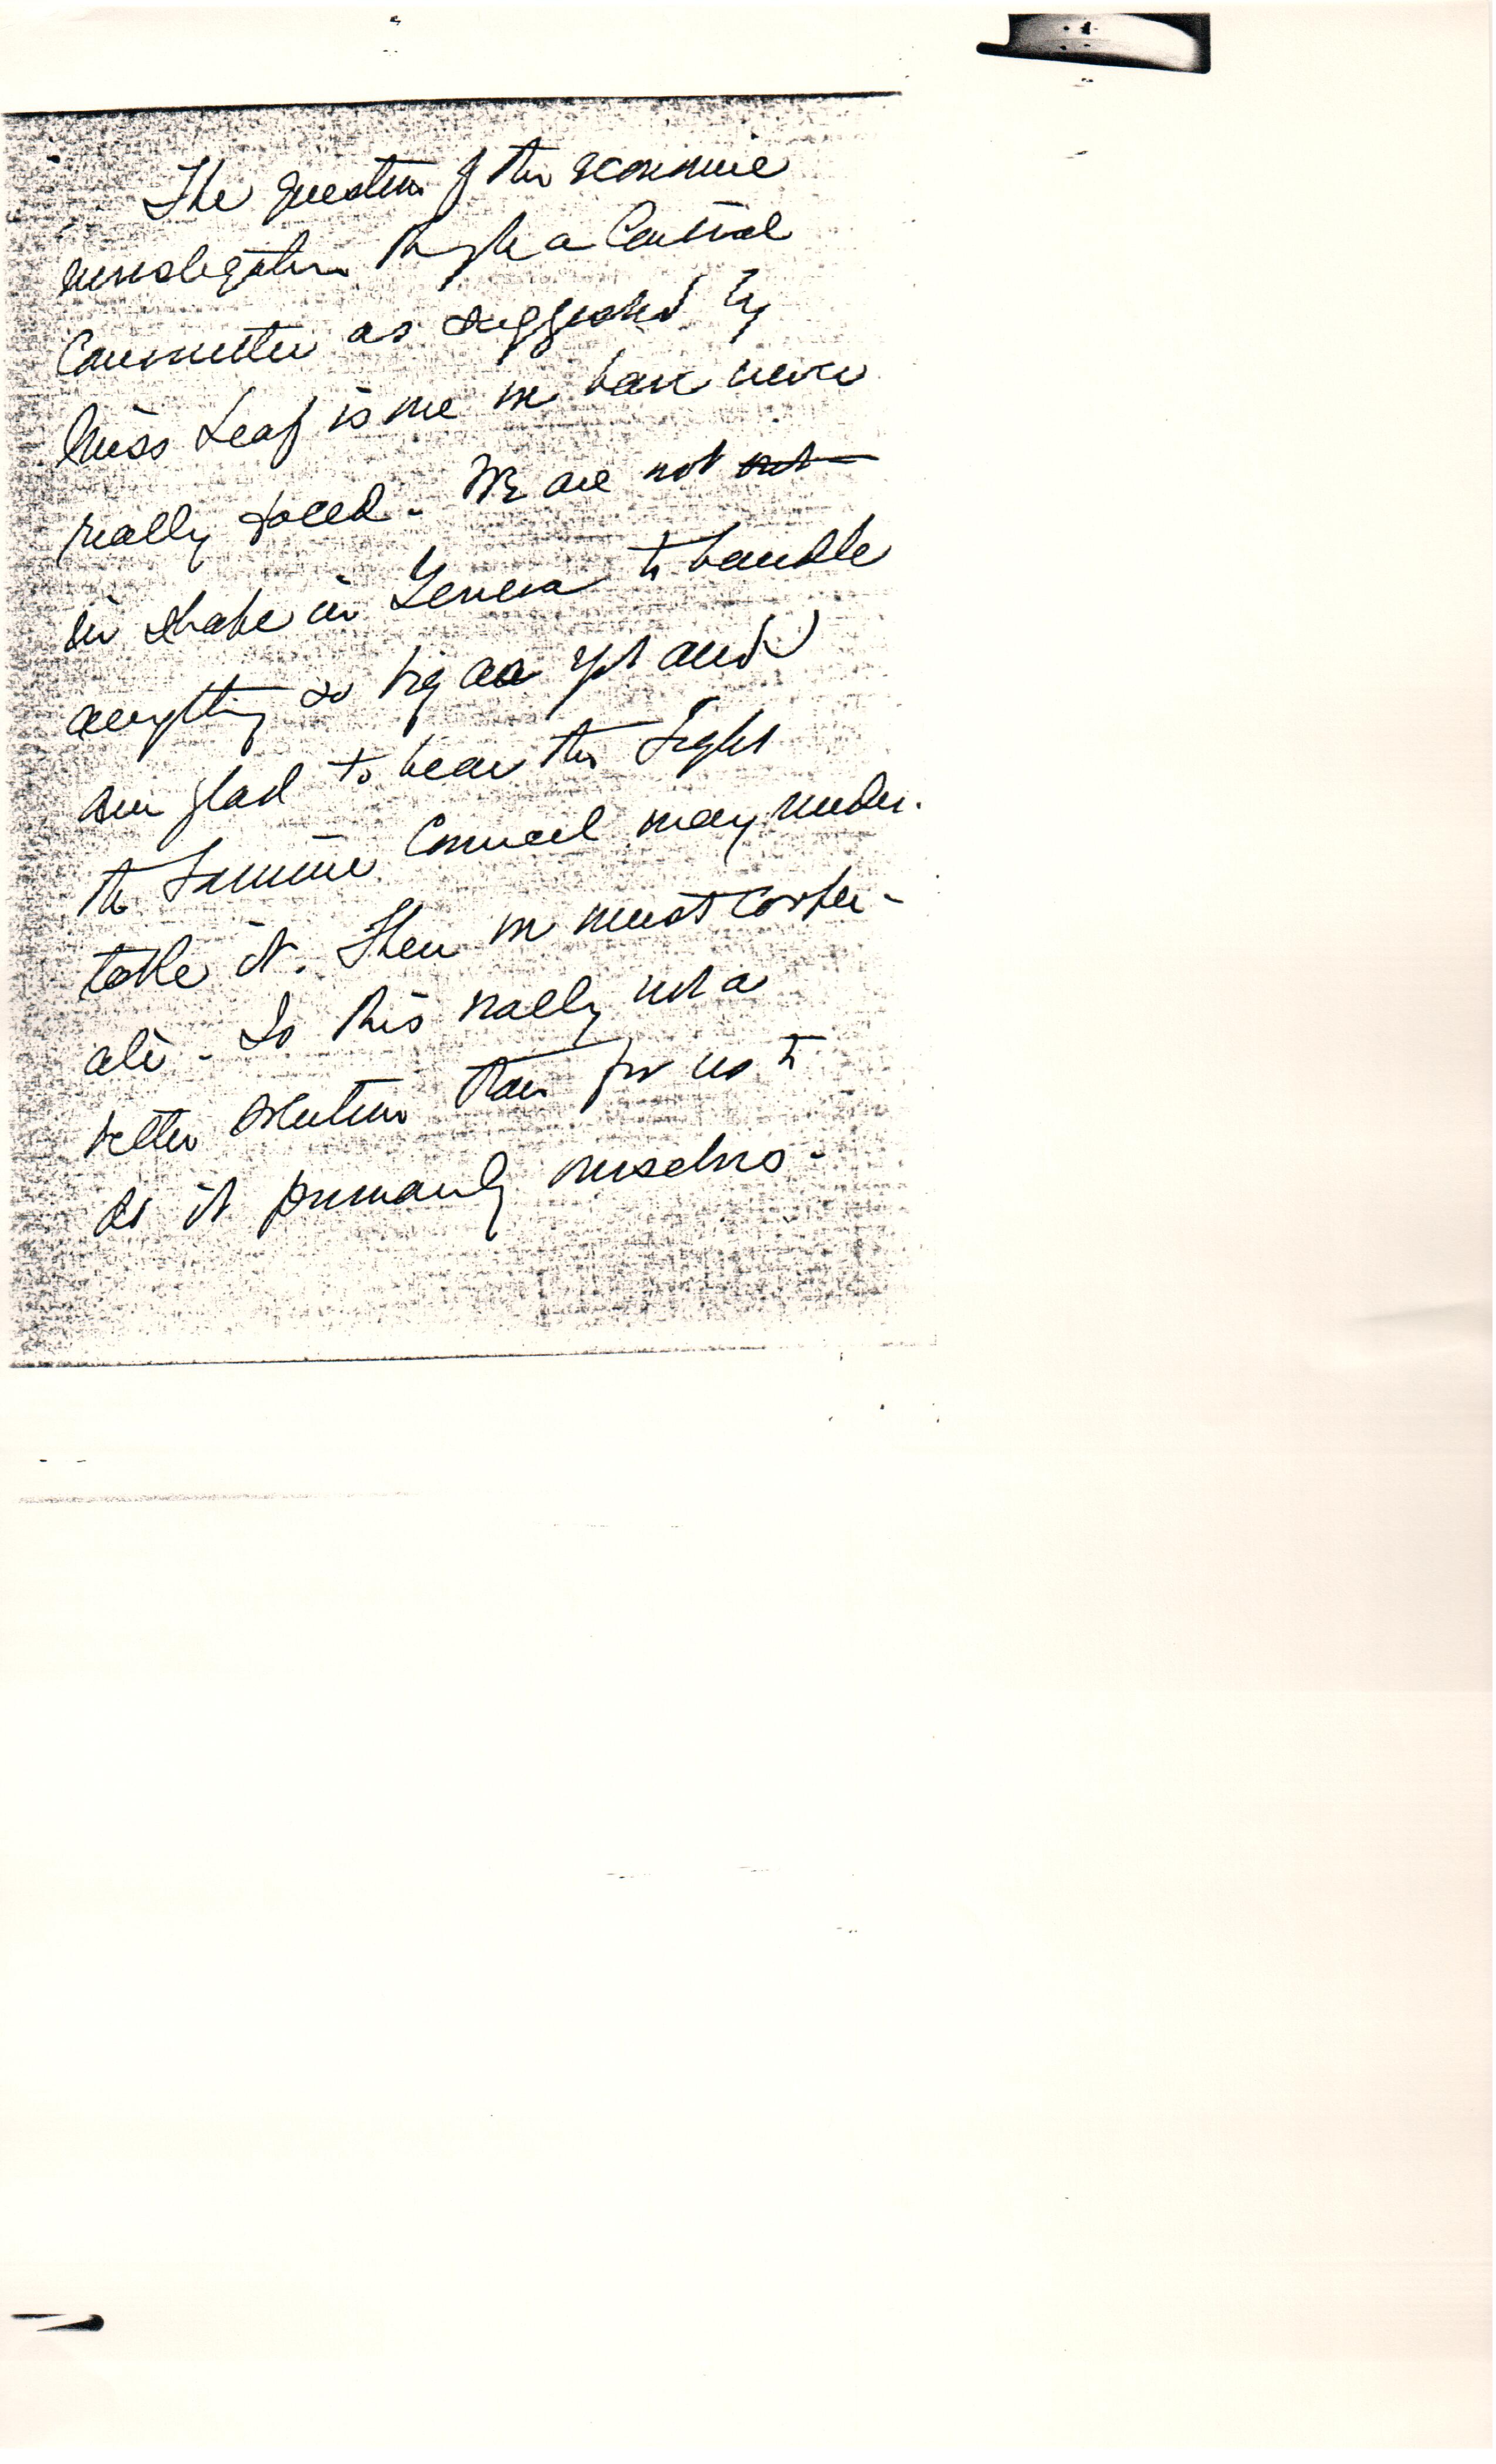 The question of the economic
investigation through a Central
Committee as suggested by
Miss Leaf is one we have never
really faced. We are not out
in shape in Geneva to handle
anything so big as yet and
am glad to hear the Fight
the Famine Council may under-
take it. Then we must cooper-
ate. Is this really not a
better solution than for us to
do it primarily ourselves.